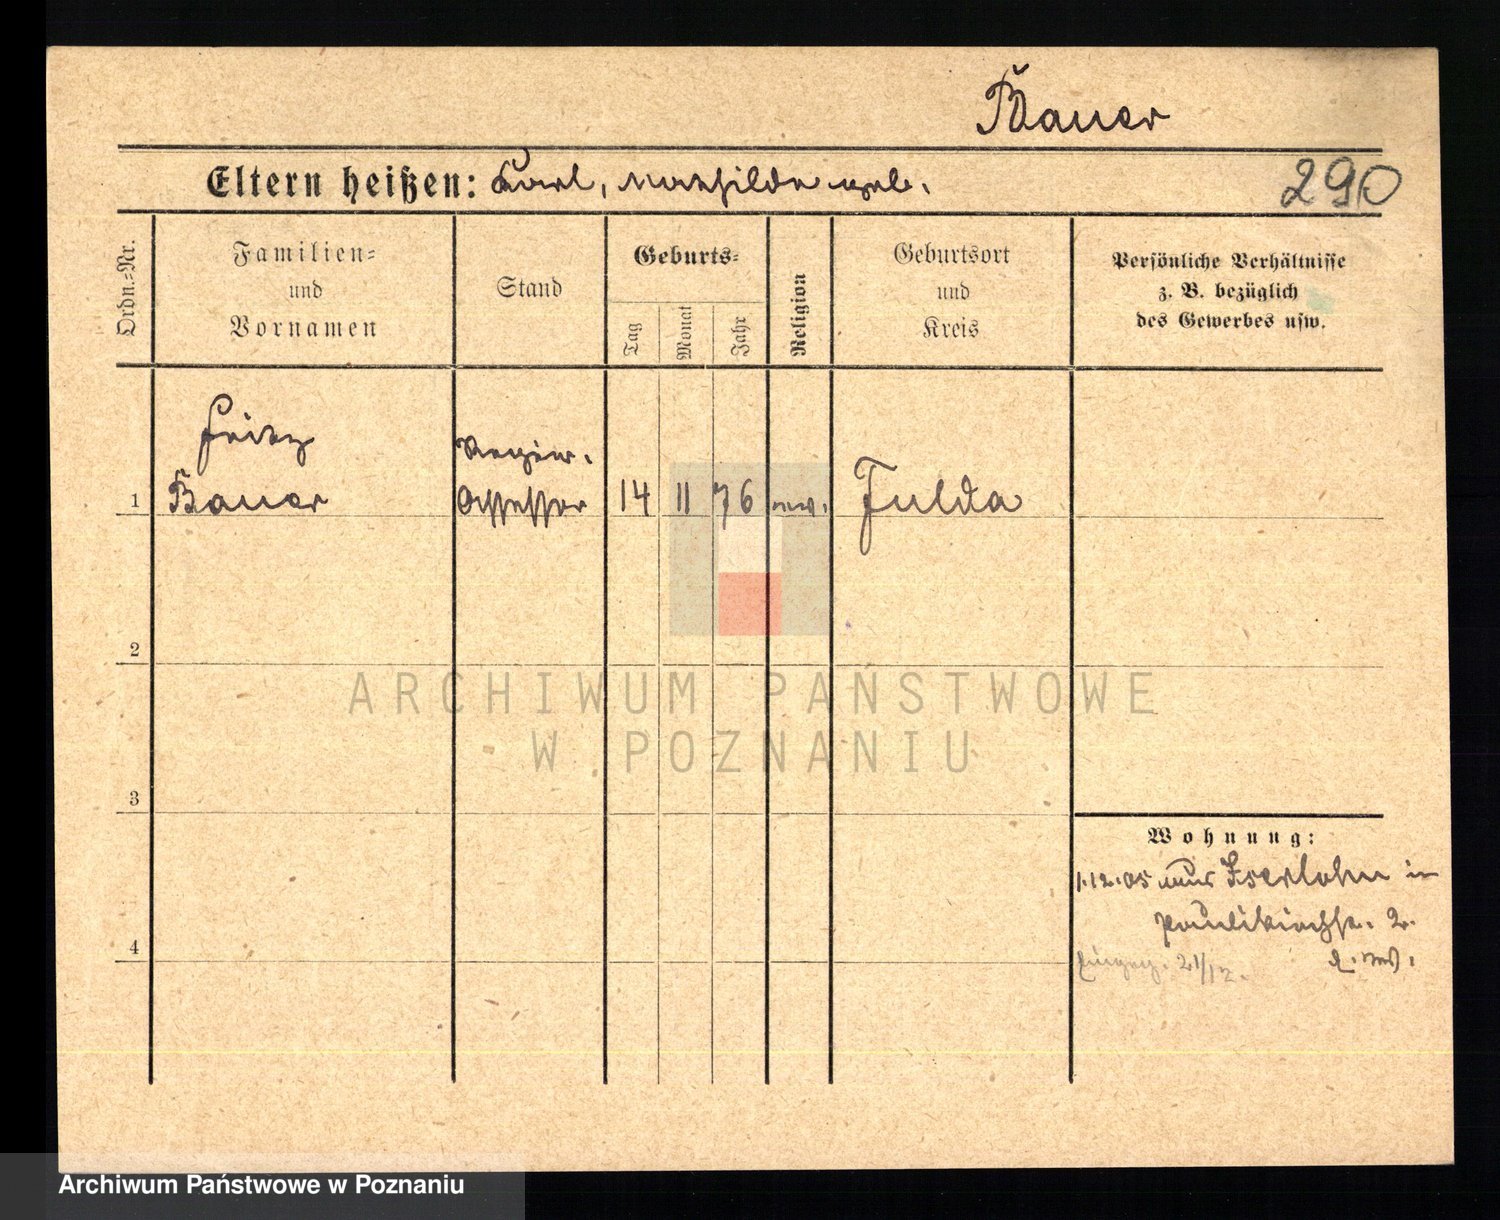 Bauer
Eltern heißen: Karl, Mathilde geb.
290
Ordn.-Nr.
Familien-
und
Vornamen
Stand
Geburts-
Tag
Monat
Jahr
Religion
Geburtsort
und
Kreis
Persönliche Verhältnisse
z. B. bezüglich
des Gewerbes usw.
Fritz
Regier.
1 Bauer Assessor 14 11 76 Fulda
2
ARCHIWUM PAŃSTWOWE
W POZNANIU
3
Wohnung:
1.12.05 Iserlohn
Paulikirchstr. 2.
4
21/12.
Archiwum Państwowe w Poznaniu